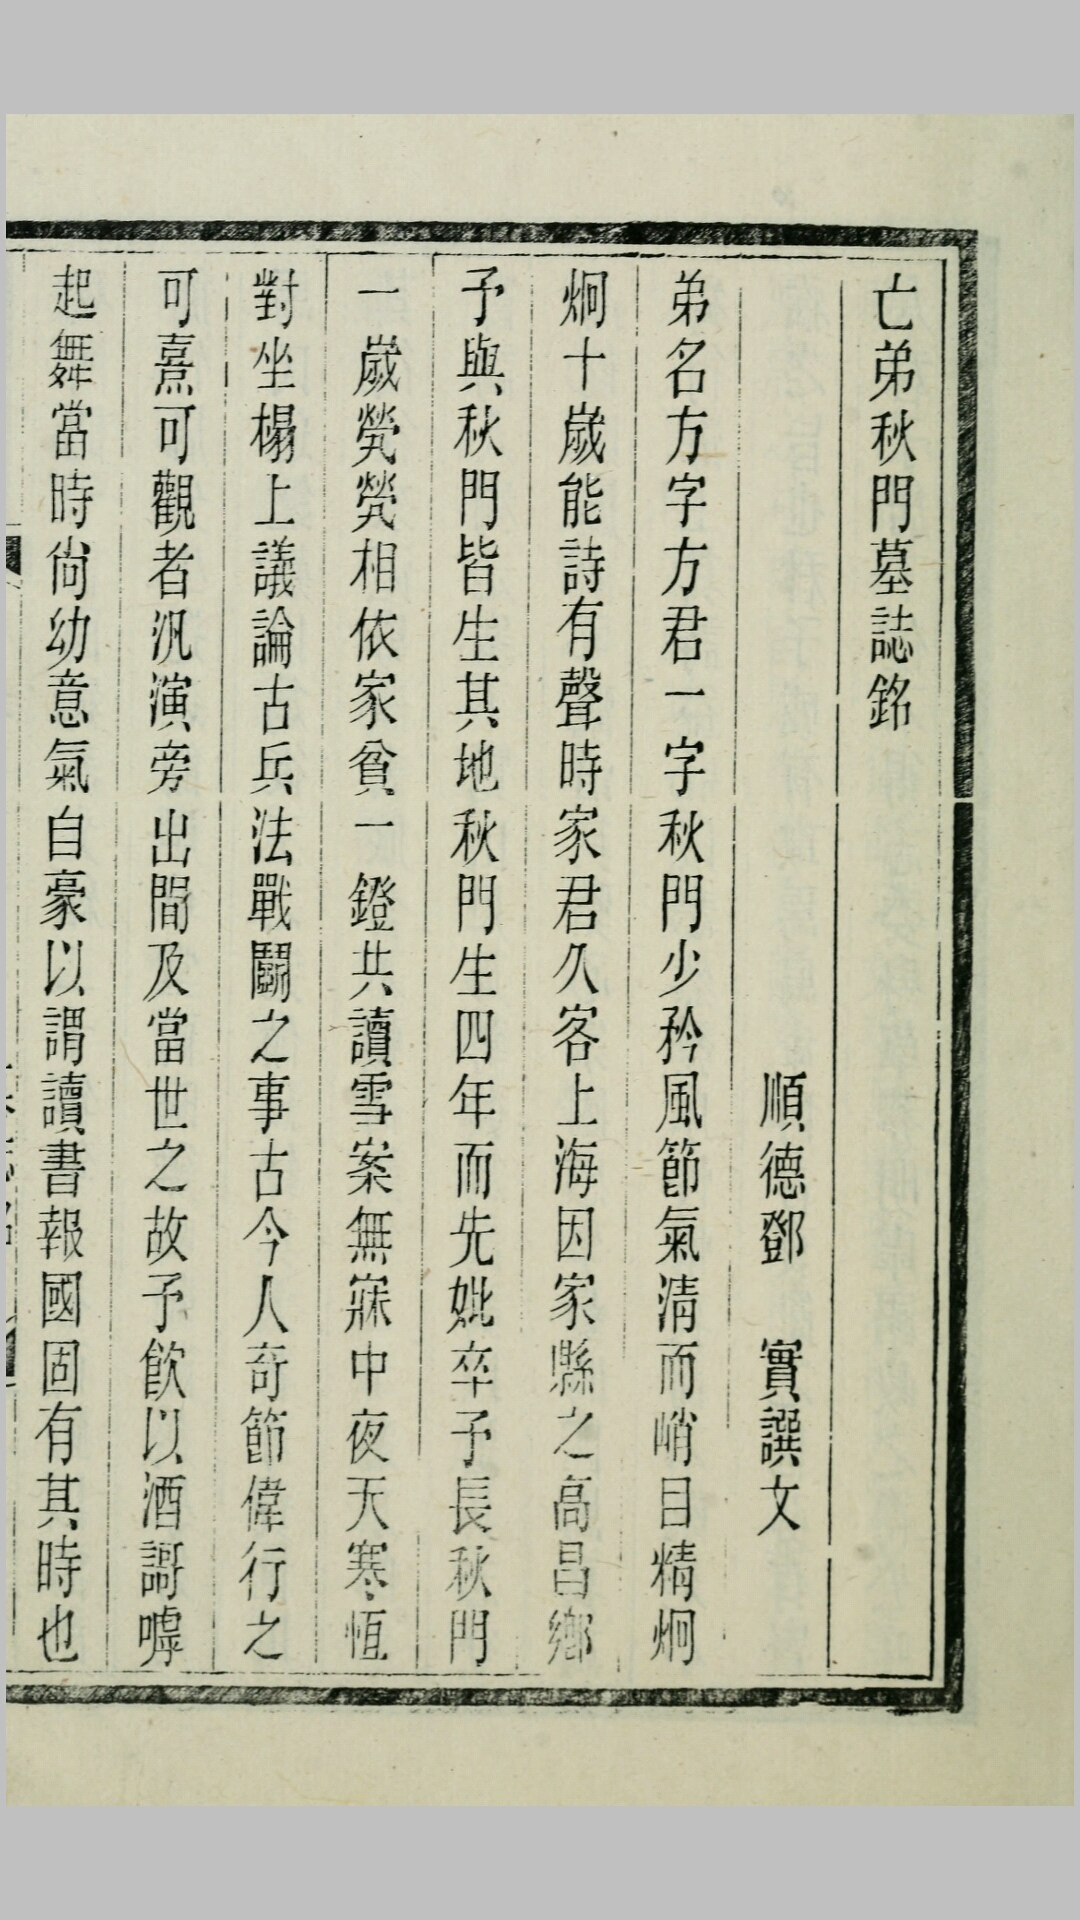 亡弟秋門墓誌銘
順德鄧 實譔文
弟名方字方君一字秋門少矜風節氣清而峭目精炯
炯十歲能詩有聲時家君久客上海因家縣之高昌鄉
予與秋門皆生其地秋門生四年而先妣卒予長秋門
一歲煢煢相依家貧一鐙共讀雪案無寐中夜天寒恆
對坐榻上議論古兵法戰鬬之事古今人奇節偉行之
可熹可觀者汎演旁出間及當世之故予飲以酒謌嘑
起舞當時尙幼意氣自豪以謂讀書報國固有其時也